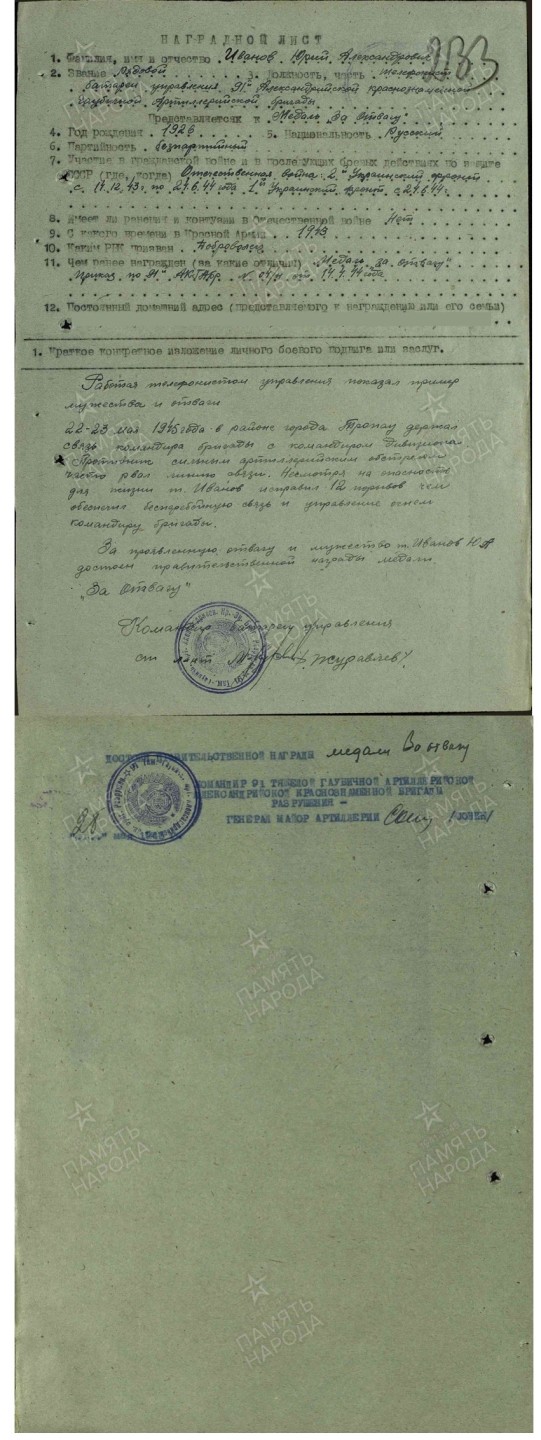 НАГРАДНОЙ ЛИСТ
1. Фамилия, имя и отчество Иванов Юрий Александрович
2. Звание Рядовой 3. Должность, часть телефонист
батареи управления 91й Александрийской краснознаменной
гаубичной Артиллерийской бригады
Представляется к Медаль "За Отвагу"
4. Год рождения 1926 5. Национальность Русский
6. Партийность безпартийный
7. Участие в гражданской войне и в последующих боевых действиях по защите
СССР (где, когда) Отечественная война: 2й Украинский фронт
с 17.12.43г. по 24.6.44 года 1й Украинский фронт с 24.6.44г.
8. Имеет ли ранения и контузии в Отечественной войне Нет
9. С какого времени в Красной Армии 1943
10. Каким РВК призван
11. Чем ранее награжден (за какие отличия) Медаль "За отвагу"
Приказ по 91й АКГАБр № от 14.4.44 года
12. Постоянный домашний адрес (представляемого к награждению или его семьи)
1. Краткое конкретное изложение личного боевого подвига или заслуг.
Работая телефонистом управления показал пример
мужества и отваги
22-23 мая 1945 года в районе города Тропау держал
связь командира бригады с командиром дивизиона
Противник сильным артиллерийским обстрелом
часто рвал линию связи. Несмотря на опасность
для жизни т. Иванов исправил 12 порывов чем
обеспечил бесперебойную связь и управление огнем
командиру бригады.
За проявленную отвагу и мужество т. Иванов Ю.А
достоин правительственной награды медали
"За Отвагу"
Командир батареи управления
ст. лейт /Журавлев/
ДОСТОИН ПРАВИТЕЛЬСТВЕННОЙ НАГРАДЫ медали За отвагу
КОМАНДИР 91 ТЯЖЕЛОЙ ГАУБИЧНОЙ АРТИЛЛЕРИЙСКОЙ
АЛЕКСАНДРИЙСКОЙ КРАСНОЗНАМЕННОЙ БРИГАДЫ
РАЗРУШЕНИЯ -
ГЕНЕРАЛ МАЙОР АРТИЛЛЕРИИ
"28" мая
ПАМЯТЬ НАРОДА
ПАМЯТЬ НАРОДА
ПАМЯТЬ НАРОДА
ПАМЯТЬ НАРОДА
ПАМЯТЬ НАРОДА